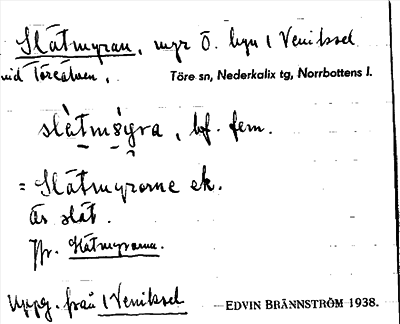 Slåtmyran, myr Ö. byn 1 Veniksel
vid Töreälven.
Töre sn, Nederkalix tg, Norrbottens l.
slàtmỳra, bf. fem.
= Slåtmyrorne ek.
Är slåt.
Jfr. Slåtmyrorna.
Uppg. från 1 Veniksel
EDVIN BRÄNNSTRÖM 1938.